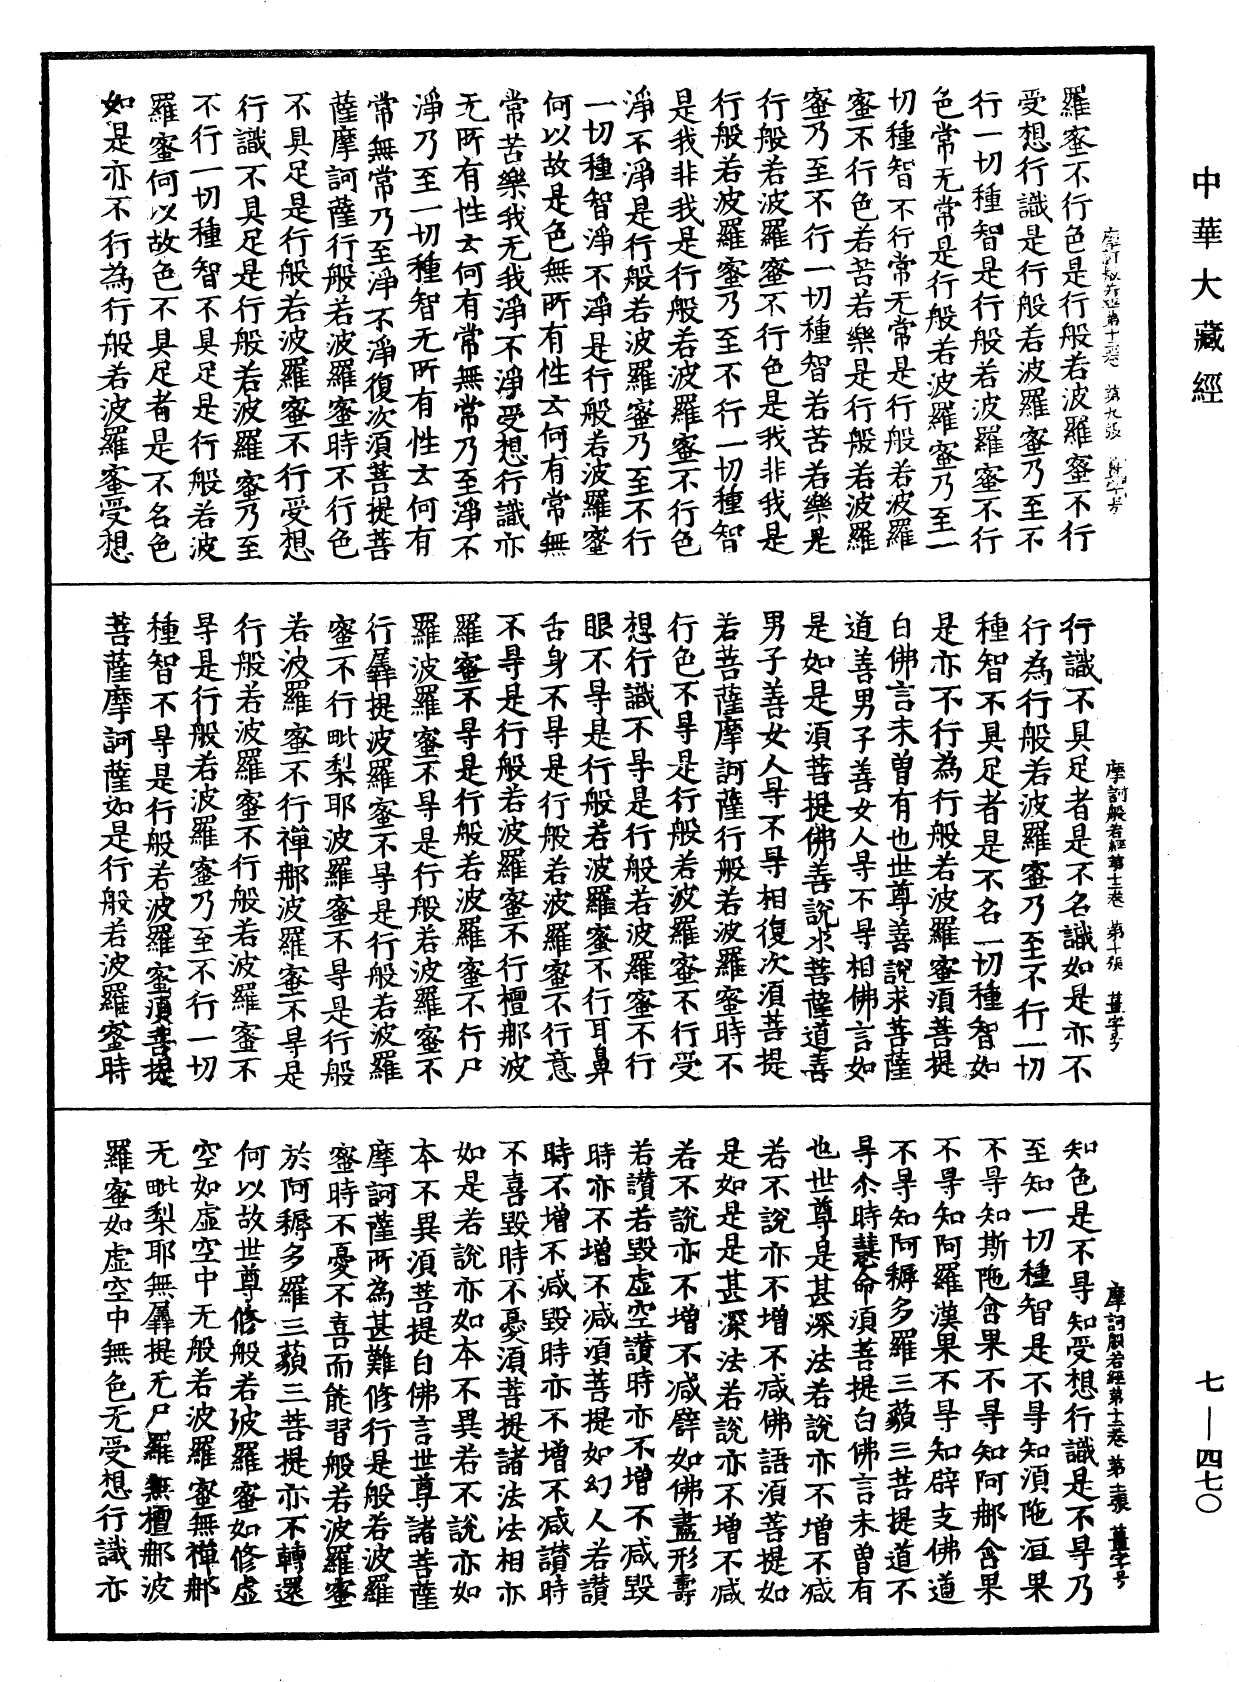 中華大藏經
羅蜜不行色是行般若波羅蜜不行
受想行識是行般若波羅蜜乃至不
行一切種智是行般若波羅蜜不行
色常无常是行般若波羅蜜乃至一
切種智不行常无常是行般若波羅
蜜不行色若苦若樂是行般若波羅
蜜乃至不行一切種智若苦若樂是
行般若波羅蜜不行色是我非我是
行般若波羅蜜乃至不行一切種智
是我非我是行般若波羅蜜不行色
淨不淨是行般若波羅蜜乃至不行
一切種智淨不淨是行般若波羅蜜
何以故是色無所有性云何有常無
常苦樂我无我淨不淨受想行識亦
无所有性云何有常無常乃至淨不
淨乃至一切種智无所有性云何有
常無常乃至淨不淨復次須菩提菩
薩摩訶薩行般若波羅蜜時不行色
不具足是行般若波羅蜜不行受想
行識不具足是行般若波羅蜜乃至
不行一切種智不具足是行般若波
羅蜜何以故色不具足者是不名色
如是亦不行為行般若波羅蜜受想
摩訶般若經第十二卷 第十張 薑字号
行識不具足者是不名識如是亦不
行為行般若波羅蜜乃至不行一切
種智不具足者是不名一切種智如
是亦不行為行般若波羅蜜須菩提
白佛言未曽有也世尊善說求菩薩
道善男子善女人㝵不㝵相佛言如
是如是須菩提佛善說求菩薩道善
男子善女人㝵不㝵相復次須菩提
若菩薩摩訶薩行般若波羅蜜時不
行色不㝵是行般若波羅蜜不行受
想行識不㝵是行般若波羅蜜不行
眼不㝵是行般若波羅蜜不行耳鼻
舌身不㝵是行般若波羅蜜不行意
不㝵是行般若波羅蜜不行檀那波
羅蜜不㝵是行般若波羅蜜不行尸
羅波羅蜜不㝵是行般若波羅蜜不
行羼提波羅蜜不㝵是行般若波羅
蜜不行毗梨耶波羅蜜不㝵是行般
若波羅蜜不行禪那波羅蜜不㝵是
行般若波羅蜜不行般若波羅蜜不
㝵是行般若波羅蜜乃至不行一切
種智不㝵是行般若波羅蜜須菩提
菩薩摩訶薩如是行般若波羅蜜時
摩訶般若經第十二卷 第十一張 薑字号
知色是不㝵知受想行識是不㝵乃
至知一切種智是不㝵知須陁洹果
不㝵知斯陁含果不㝵知阿那含果
不㝵知阿羅漢果不㝵知辟支佛道
不㝵知阿耨多羅三藐三菩提道不
㝵尒時慧命須菩提白佛言未曽有
也世尊是甚深法若說亦不增不减
若不說亦不增不减佛語須菩提如
是如是是甚深法若說亦不增不减
若不說亦不增不减譬如佛盡形壽
若讃若毀虛空讃時亦不增不减毀
時亦不增不减須菩提如幻人若讃
時不增不减毀時亦不增不减讃時
不喜毀時不憂須菩提諸法法相亦
如是若說亦如本不異若不說亦如
本不異須菩提白佛言世尊諸菩薩
摩訶薩所為甚難修行是般若波羅
蜜時不憂不喜而能習般若波羅蜜
於阿耨多羅三藐三菩提亦不轉還
何以故世尊修般若波羅蜜如修虛
空如虛空中无般若波羅蜜無禪那
无毗梨耶無羼提无尸羅無檀那波
羅蜜如虛空中無色无受想行識亦
七—四七〇